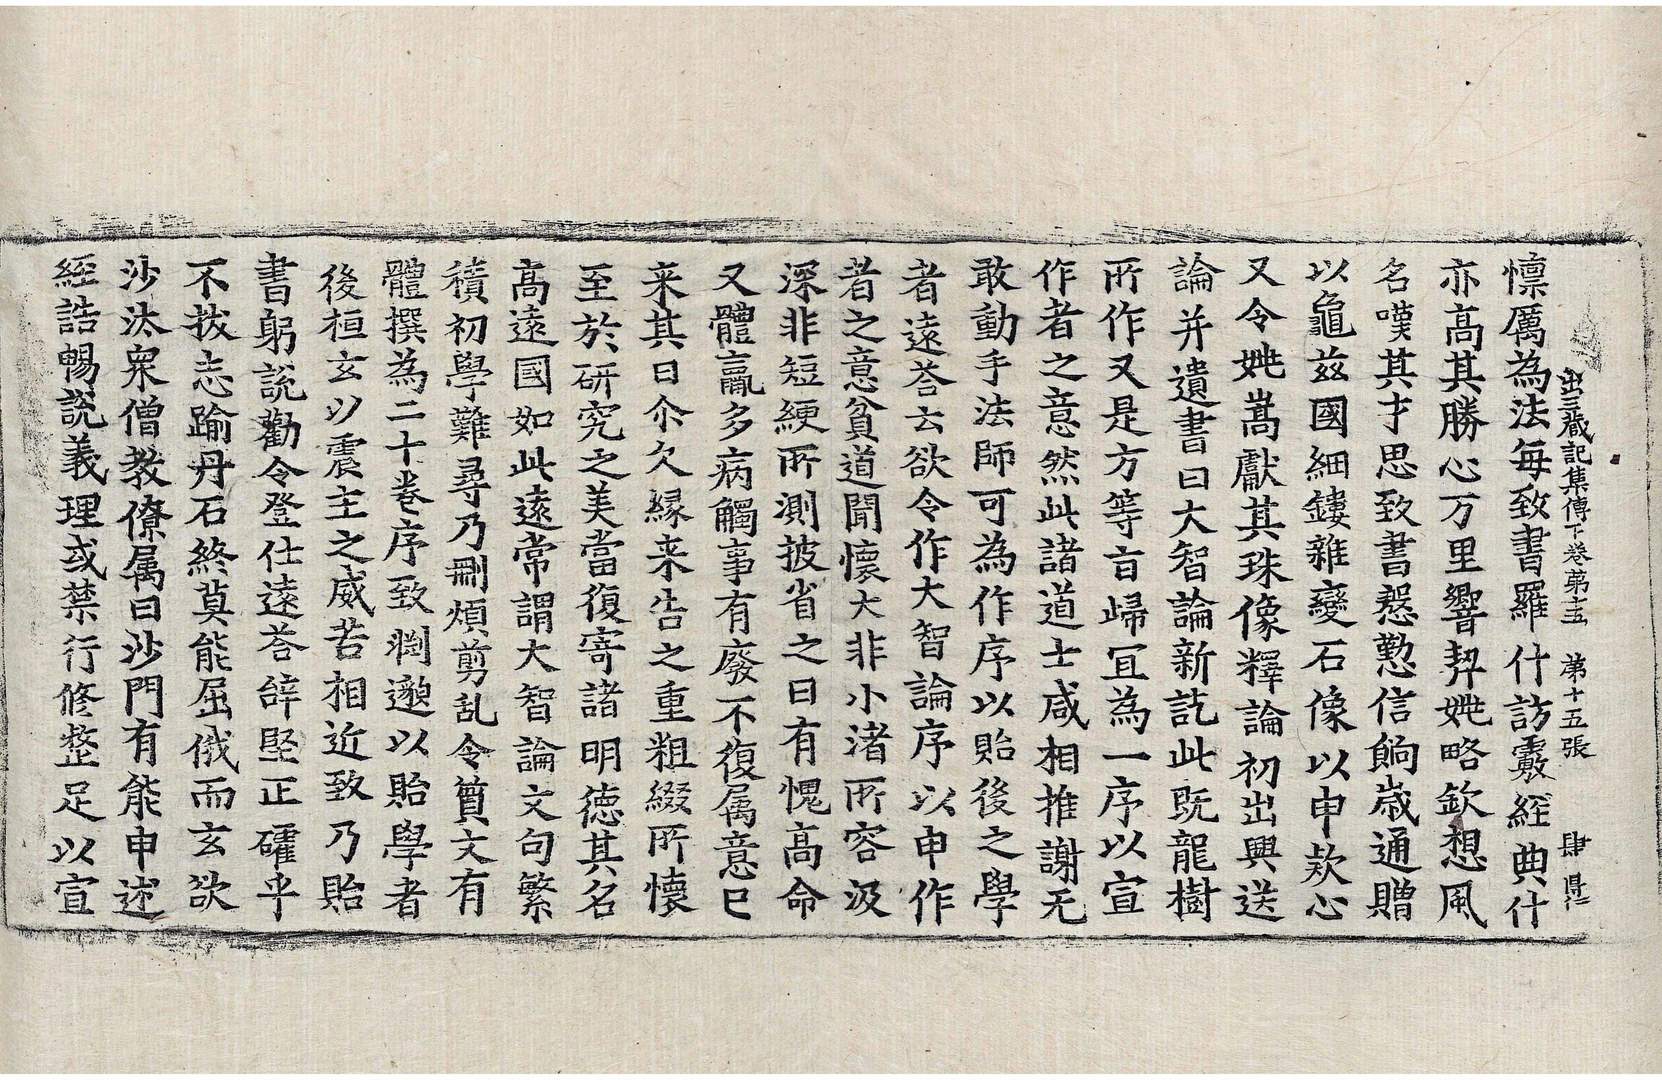 出三藏記集傳下卷第十五 第十五張 肆
懔厲為法每致書羅什訪覈經典什
亦高其勝心万里響契姚略欽想風
名嘆其才思致書慇懃信餉歲通贈
以龜兹國細鏤雜變石像以申欵心
又令姚嵩獻其珠像釋論初出興送
論并遺書曰大智論新訖此既龍樹
所作又是方等旨歸宜為一序以宣
作者之意然此諸道士咸相推謝无
敢動手法師可為作序以貽後之學
者遠荅云欲令作大智論序以申作
者之意貧道聞懷大非小渚所容汲
深非短綆所測披省之日有愧高命
又體羸多病觸事有廢不復属意已
来其日尒久縁来告之重粗綴所懷
至於研究之美當復寄諸明德其名
高遠國如此遠常謂大智論文句繁
積初學難尋乃刪煩剪乱令質文有
體撰為二十卷序致渊邈以貽學者
後桓玄以震主之威苦相近致乃貽
書躬說勸令登仕遠荅辝堅正確乎
不拔志踰丹石終莫能屈俄而玄欲
沙汰衆僧教僚属曰沙門有能申述
經誥暢說義理或禁行修整足以宣